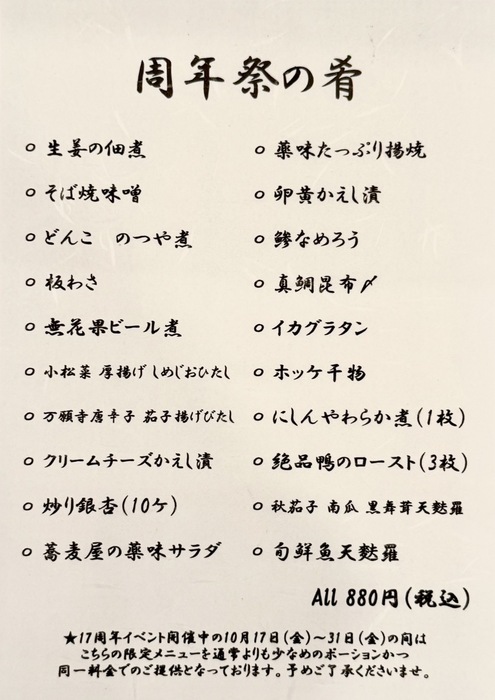 周年祭の肴
○ 生姜の佃煮
○ そば焼味噌
○ どんこ のつや煮
○ 板わさ
○ 無花果ビール煮
○ 小松菜 厚揚げ しめじおひたし
○ 万願寺唐辛子 茄子揚げびたし
○ クリームチーズかえし漬
○ 炒り銀杏(10ケ)
○ 蕎麦屋の薬味サラダ
○ 薬味たっぷり揚焼
○ 卵黄かえし漬
○ 鯵なめろう
○ 真鯛昆布〆
○ イカグラタン
○ ホッケ干物
○ にしんやわらか煮(1枚)
○ 絶品鴨のロースト(3枚)
○ 秋茄子 南瓜 黒舞茸天麩羅
○ 旬鮮魚天麩羅
All 880円(税込)
★17周年イベント開催中の10月17日(金)～31日(金)の間は
こちらの限定メニューを通常よりも少なめのポーションかつ
同一料金でのご提供となっております。予めご了承くださいませ。